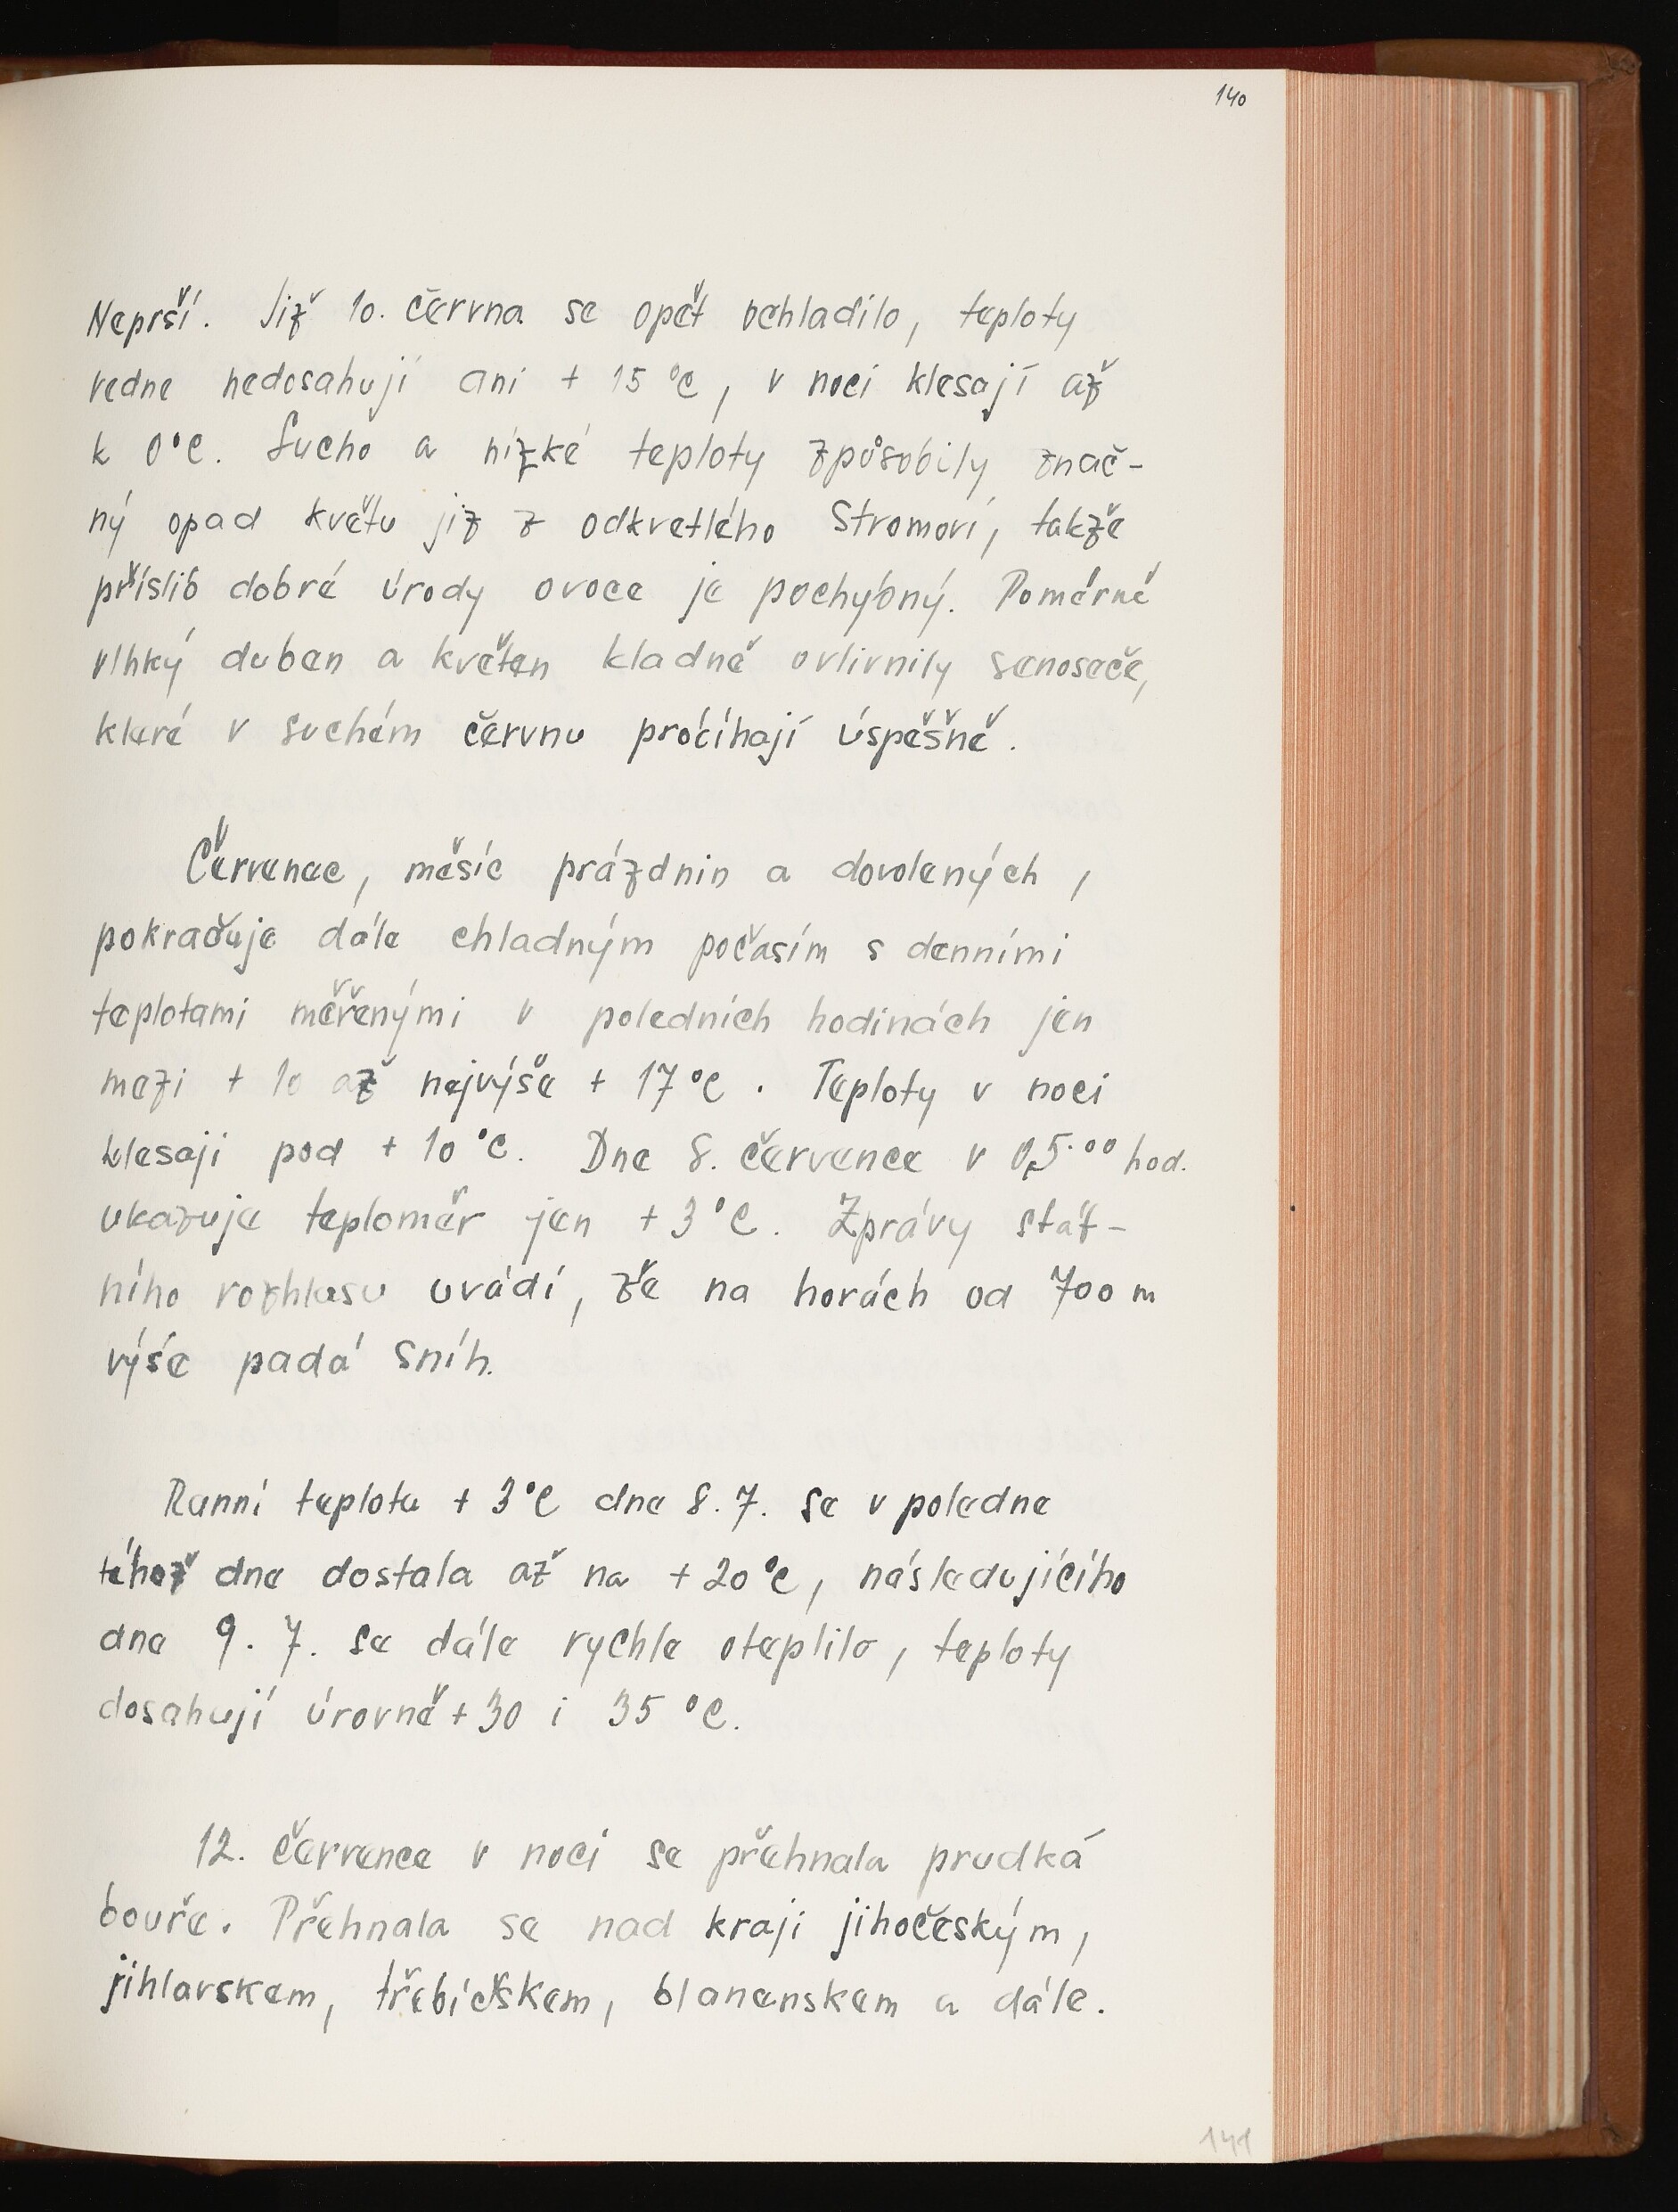 140
Neprší. Již 10. června se opět ochladilo, teploty
vedne nedosahují ani + 15 °C, v noci klesají až
k 0°C. Sucho a nízké teploty způsobily znač-
ný opad květu již z odkvetlého stromoví, takže
příslib dobré úrody ovoce je pochybný. Poměrně
vlhký duben a květen kladně ovlivnily senoseče,
které v suchém červnu probíhají úspěšně.
Červenec, měsíc prázdnin a dovolených,
pokračuje dále chladným počasím s denními
teplotami měřenými v poledních hodinách jen
mezi + 10 až nejvýše + 17 °C. Teploty v noci
klesají pod + 10 °C. Dne 8. července v 05.00 hod.
ukazuje teploměr jen + 3 °C. Zprávy stát-
ního rozhlasu uvádí, že na horách od 700 m
výše padá sníh.
Ranní teplota + 3 °C dne 8. 7. se v poledne
téhož dne dostala až na + 20 °C, následujícího
dne 9. 7. se dále rychle oteplilo, teploty
dosahují úrovně + 30 i 35 °C.
12. července v noci se přehnala prudká
bouře. Přehnala se nad kraji jihočeským,
jihlavskem, třebíčskem, blanenskem a dále.
141